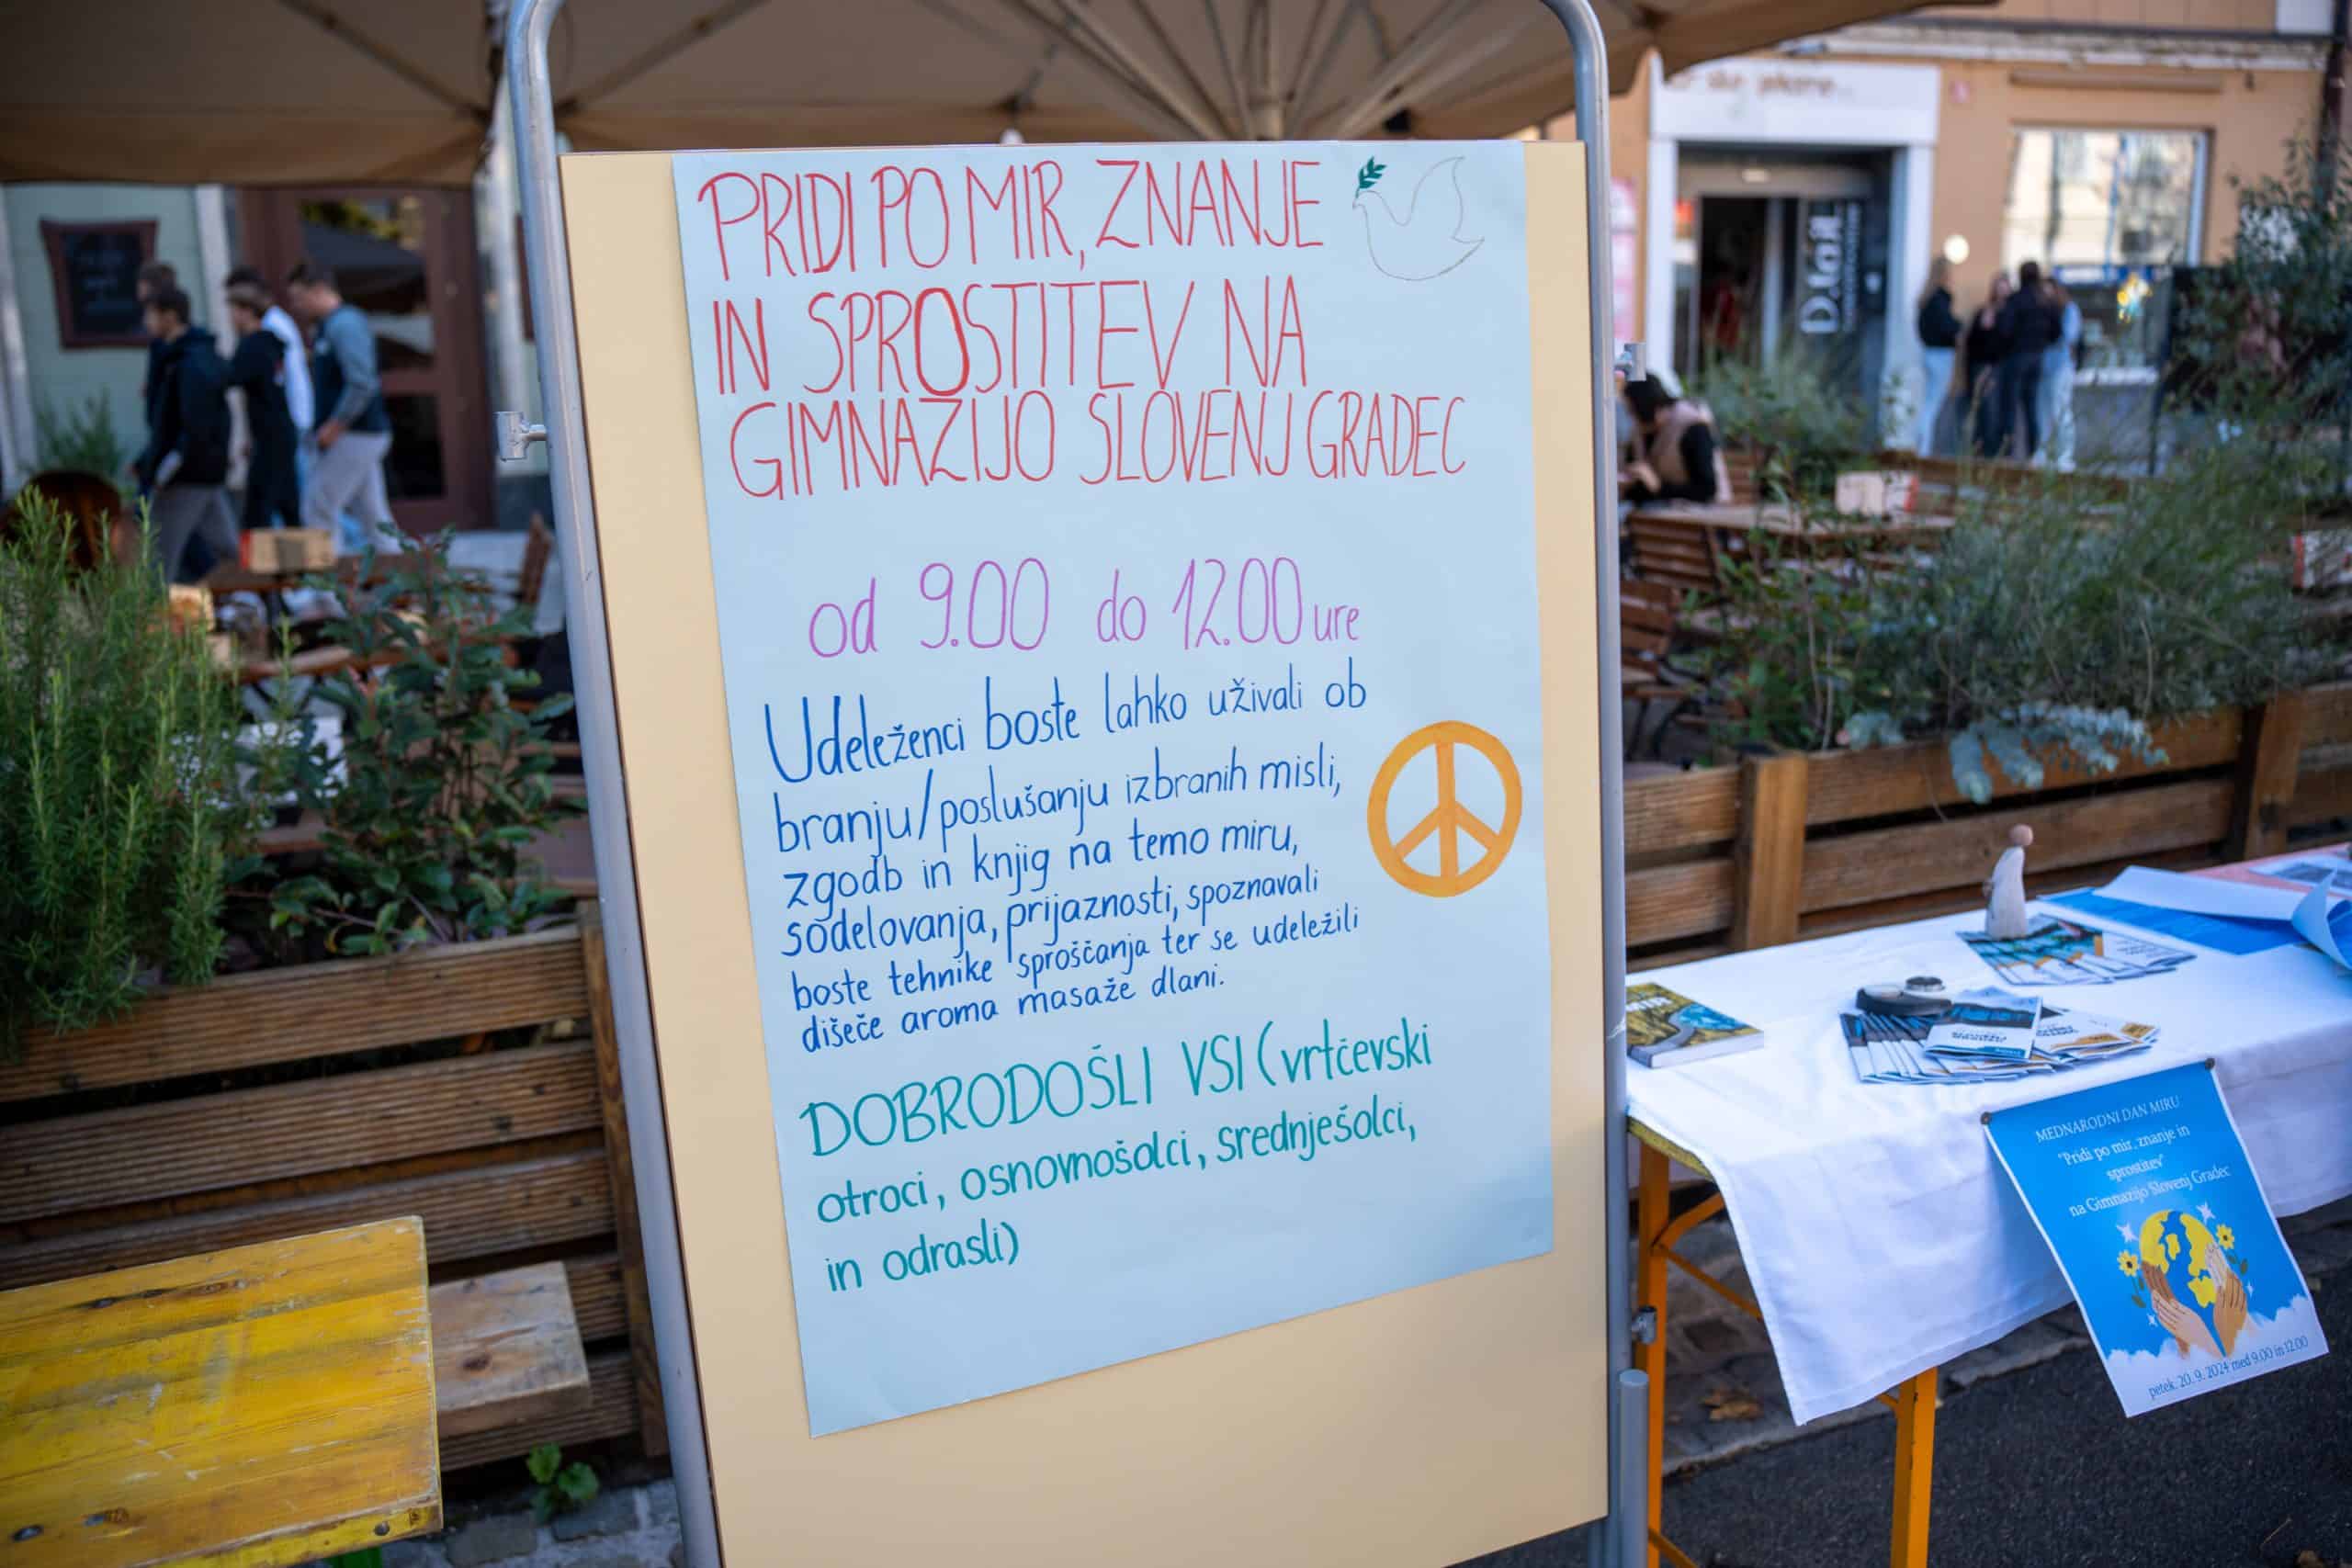 PRIDI PO MIR, ZNANJE
IN SPROSTITEV NA
GIMNAZIJO SLOVENJ GRADEC
od 9.00 do 12.00 ure
Udeleženci boste lahko uživali ob
branju/poslušanju izbranih misli,
zgodb in knjig na temo miru,
sodelovanja, prijaznosti, spoznavali
boste tehnike sproščanja ter se udeležili
dišeče aroma masaže dlani.
DOBRODOŠLI VSI (vrtčevski
otroci, osnovnošolci, srednješolci,
in odrasli)
MEDNARODNI DAN MIRU
"Pridi po mir, znanje in
sprostitev"
na Gimnazijo Slovenj Gradec
petek, 20. 9. 2024 med 9.00 in 12.00